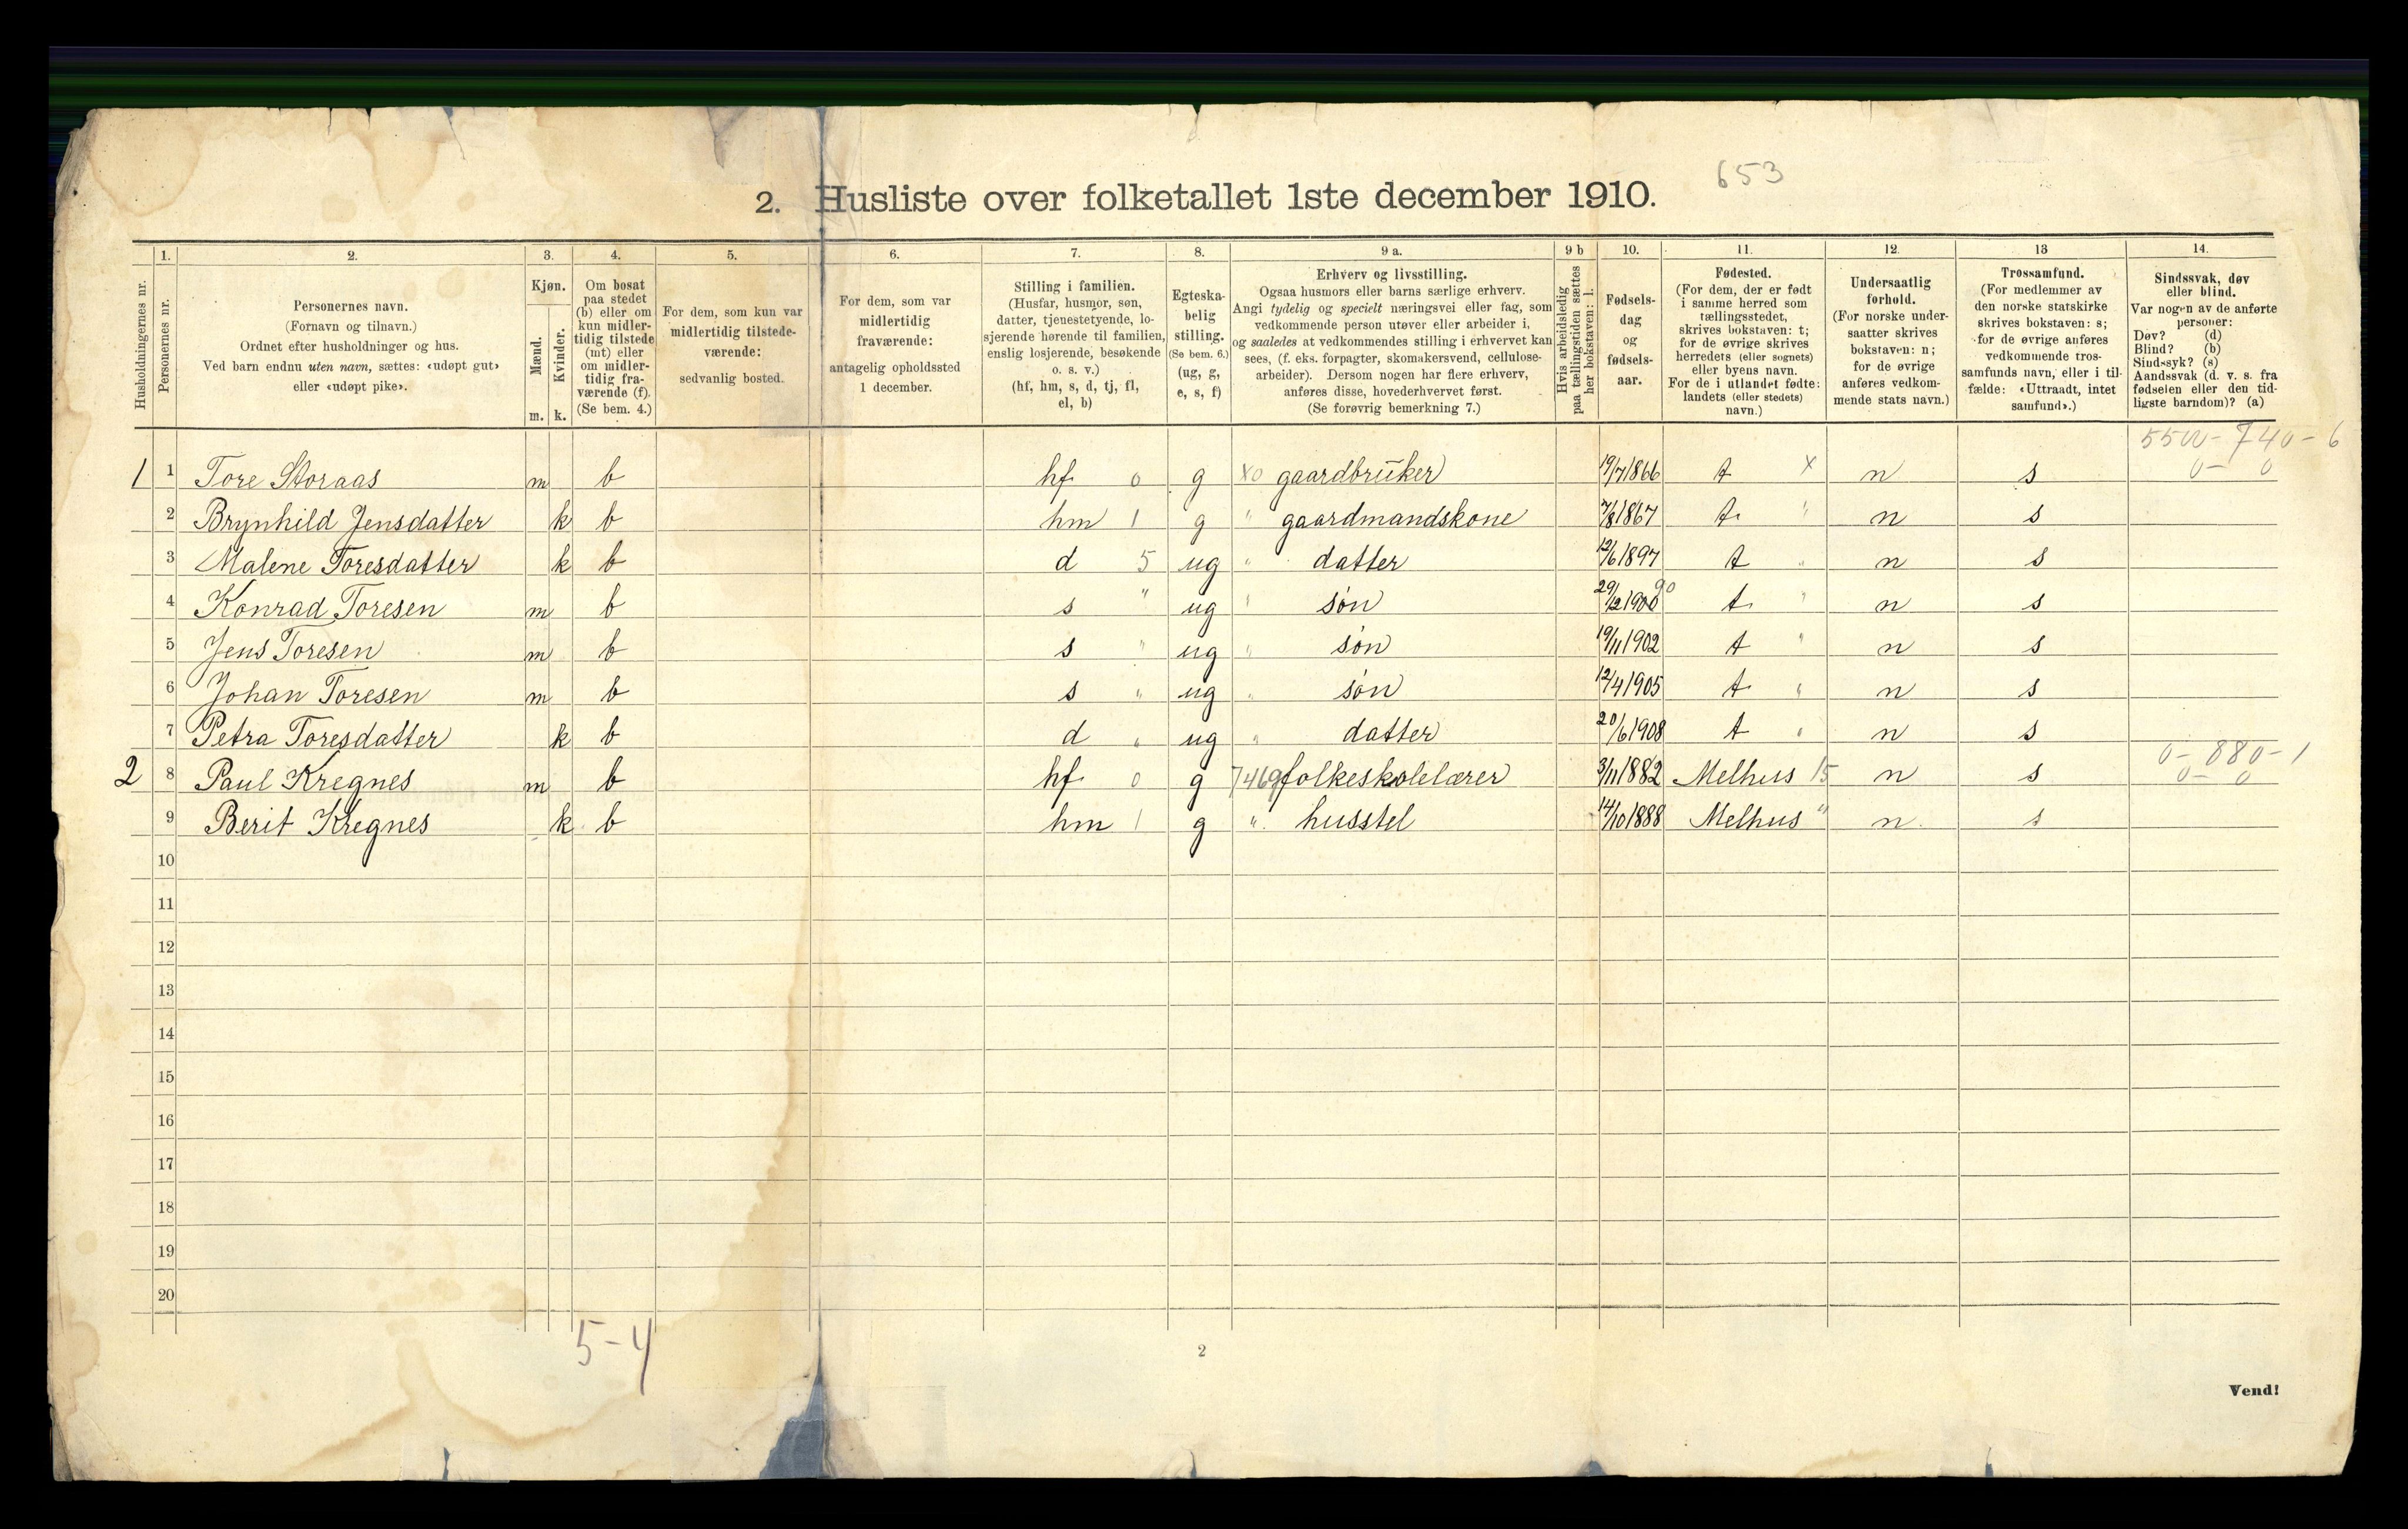 653
2. Husliste over folketallet 1ste december 1910.
Husholdningernes nr.
1.
Personernes nr.
2.
Personernes navn.
(Fornavn og tilnavn.)
Ordnet efter husholdninger og hus.
Ved barn endnu uten navn, sættes: «udøpt gut»
eller «udøpt pike».
3.
Kjøn.
Mænd.
Kvinder.
m. k.
4.
Om bosat
paa stedet
(b) eller om
kun midler-
tidig tilstede
(mt) eller
om midler-
tidig fra-
værende (f).
(Se bem. 4.)
5.
For dem, som kun var
midlertidig tilstede-
værende:
sedvanlig bosted.
6.
For dem, som var
midlertidig
fraværende:
antagelig opholdssted
1 december.
7.
Stilling i familien.
(Husfar, husmor, søn,
datter, tjenestetyende, lo-
sjerende hørende til familien,
enslig losjerende, besøkende
o. s. v.)
(hf, hm, s, d, tj, fl,
el, b)
8.
Egteska-
belig
stilling.
(Se bem. 6.)
(ug, g,
e, s, f)
9 a.
Erhverv og livsstilling.
Ogsaa husmors eller barns særlige erhverv.
Angi tydelig og specielt næringsvei eller fag, som
vedkommende person utøver eller arbeider i,
og saaledes at vedkommendes stilling i erhvervet kan
sees, (f. eks. forpagter, skomakersvend, cellulose-
arbeider). Dersom nogen har flere erhverv,
anføres disse, hovederhvervet først.
(Se forøvrig bemerkning 7.)
9 b
Hvis arbeidsledig
paa tællingstiden sættes
her bokstaven: l.
10.
Fødsels-
dag
og
fødsels-
aar.
11.
Fødested.
(For dem, der er født
i samme herred som
tællingsstedet,
skrives bokstaven: t;
for de øvrige skrives
herredets (eller sognets)
eller byens navn.
For de i utlandet fødte:
landets (eller stedets)
navn.)
12.
Undersaatlig
forhold.
(For norske under-
saatter skrives
bokstaven: n;
for de øvrige
anføres vedkom-
mende stats navn.)
13
Trossamfund.
(For medlemmer av
den norske statskirke
skrives bokstaven: s;
for de øvrige anføres
vedkommende tros-
samfunds navn, eller i til-
fælde: «Uttraadt, intet
samfund».)
14.
Sindssvak, døv
eller blind.
Var nogen av de anførte
personer:
Døv? (d)
Blind? (b)
Sindssyk? (s)
Aandssvak (d. v. s. fra
fødselen eller den tid-
ligste barndom)? (a)
740 - 6
1 1 Tore Storaas m b hf 0 g x0 gaardbruker 19/7 1866 t x n s 0 - 0
2 Brynhild Jensdatter k b hm 1 g " gaardmandskone 7/8 1867 t " n s
3 Malene Toresdatter k b d 5 ug " datter 12/6 1897 t " n s
4 Konrad Toresen m b s " ug " søn 29/12 1900 90 t " n s
5 Jens Toresen m b s " ug " søn 19/11 1902 t " n s
6 Johan Toresen m b s " ug " søn 12/4 1905 t " n s
7 Petra Toresdatter k b d " ug " datter 20/6 1908 t " n s
0 - 880 - 1
2 8 Paul Kregnes m b hf 0 g 7469 folkeskolelærer 3/11 1882 Melhus 15 n s 0 - 0
9 Berit Kregnes k b hm 1 g " husstel 14/10 1888 Melhus " n s
10
11
12
13
14
15
16
17
18
19
20
5-4
2
Vend!